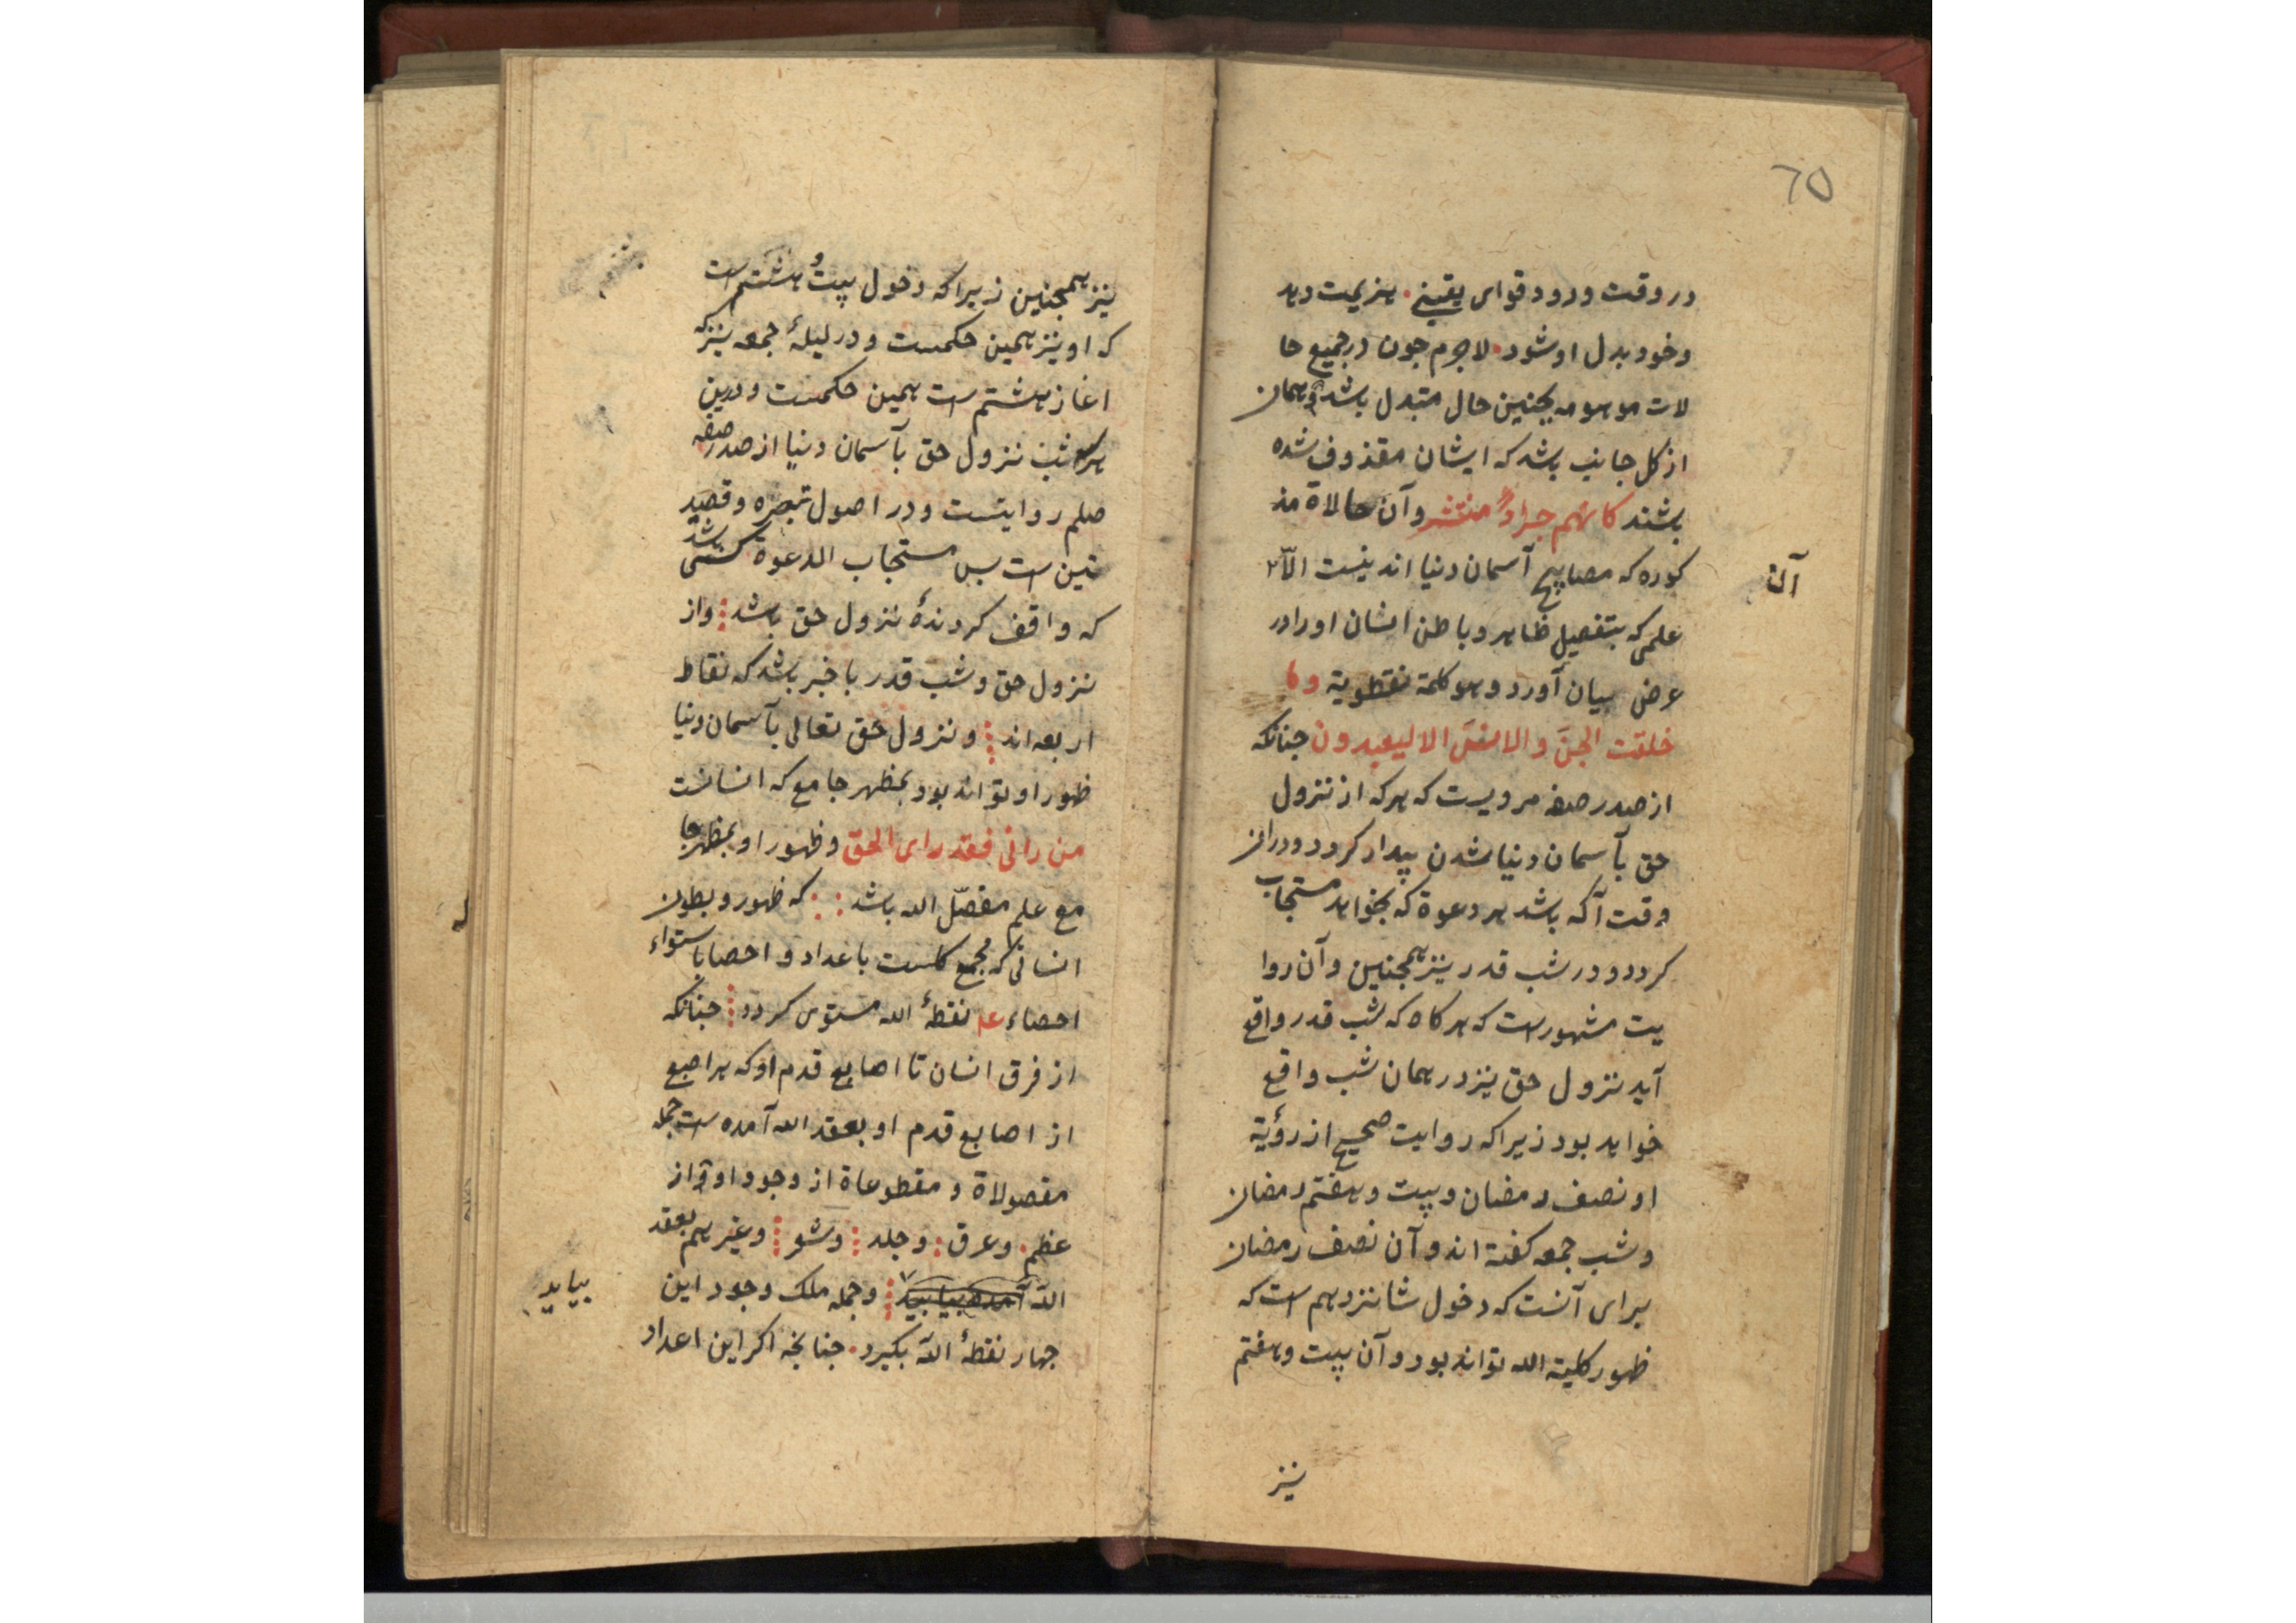 ٦٥
در وقت ورود قوای یقینی هزیمت دهد
وخود بدل او شود لاجرم جون در جمیع حا
لات موهومه یجنین حال متبدل باشد و همان
از کل جانب باشد که ایشان مقذوف شده
باشند کانهم جراد منتشر و آن حالاة مذ
کوره که مصابیح آسمان دنیا اند نیست الّا
آن
علمی که بتفصیل ظاهر و باطن انسان او را در
عرض بیان آورد و هو کلمة نقطویة وما
خلقت الجنَ والانسَ الا لیعبدون جنانکه
از صدر صفه مرویست که هر که از نزول
حق بآسمان دنیا شدن بیدار کردد و در ان
وقت آکه باشد هر دعوة که بخواهد مستجاب
کردد و در شب قدر نیز همجنین و آن روا
یت مشهور است که هر کاه که شب قدر واقع
آید نزول حق نیز در همان شب واقع
خواهد بود زیرا که روایت صحیح از رؤیة
او نصف رمضان و بیت و هفتم رمضان
و شب جمعه کفته اند و آن نصف رمضان
برای آنست که دخول شانزدهم است که
ظهور کلیة الله تواند بود و آن بیت و هفتم
نیز
نیز همجنین زیرا که دخول بیت و هشتم است
که او نیز همین حکمست و در لیلهٔ جمعه نیز که
اغاز هشتم است همین حکمست و درین
هر سه شب نزول حق بآسمان دنیا از صدر صفه
صلم روایتست و در اصول تبصره و قصید
تین است بس مستجاب الدعوة کسی باشد
که واقف کردندهٔ نزول حق باشد واز
نزول حق و شب قدر با خبر باشد که نقاط
اربعه اند و نزول حق تعالی بآسمان دنیا
ظهور او تواند بود بمظهر جامع که انسانست
من رانی فقد رای الحق و ظهور او بمظهر جا
مع علم مفصّل الله باشد که ظهور و بطون
انسانی که مجمع کلست باعداد و احصا باستواء
احصاء عد نقطهٔ الله مستوی کردد جنانکه
از فرق انسان تا اصابع قدم او که هر اصبع
از اصابع قدم او بعقد الله آمده است جمله
مفصولاة و مقطوعاة از وجود او از
عظم و عرق و جلد و شعر و غیرهم بعقد
الله آمده بیابید و جمله ملک وجود این
بیابد
جهار نقطهٔ الله بکیرد جنانجه اکر این اعداد